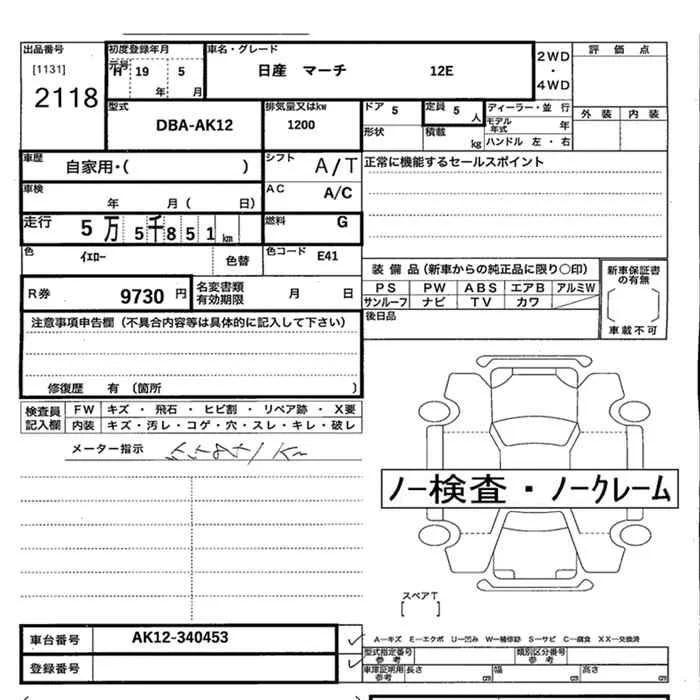 出品番号 初度登録年月 車名・グレード 評価点
[1131] 元号 H 19 5 日産 マーチ 12E 2WD
2118 年 月 ・ 4WD
型式 排気量又はkw ドア 5 定員 5人 ディーラー・並 行 外装 内装
DBA-AK12 1200 形状 積載 kg モデル年式 年
ハンドル 左・右
車歴 自家用・( ) シフト A/T 正常に機能するセールスポイント
車検 年 月( 日) AC A/C
走行 5万5千851km 燃料 G
色 イエロー 色替 色コード E41
装備品(新車からの純正品に限り○印) 新車保証書の有無
R券 9730円 名変書類有効期限 月 日 PS PW ABS エアB アルミW
サンルーフ ナビ TV カワ 車載不可
注意事項申告欄(不具合内容等は具体的に記入して下さい) 後日品
修復歴 有(箇所 )
検査員記入欄 FW キズ・飛石・ヒビ割・リペア跡・X要
内装 キズ・汚レ・コゲ・穴・スレ・キレ・破レ
メーター指示
ノー検査・ノークレーム
スペアT
[ ]
車台番号 AK12-340453 A―キズ E―エクボ U―凹み W―補修跡 S―サビ C―腐食 XX―交換済
型式指定番号参考 類別区分番号参考
登録番号 車庫証明用参考 長さ cm 幅 cm 高さ cm